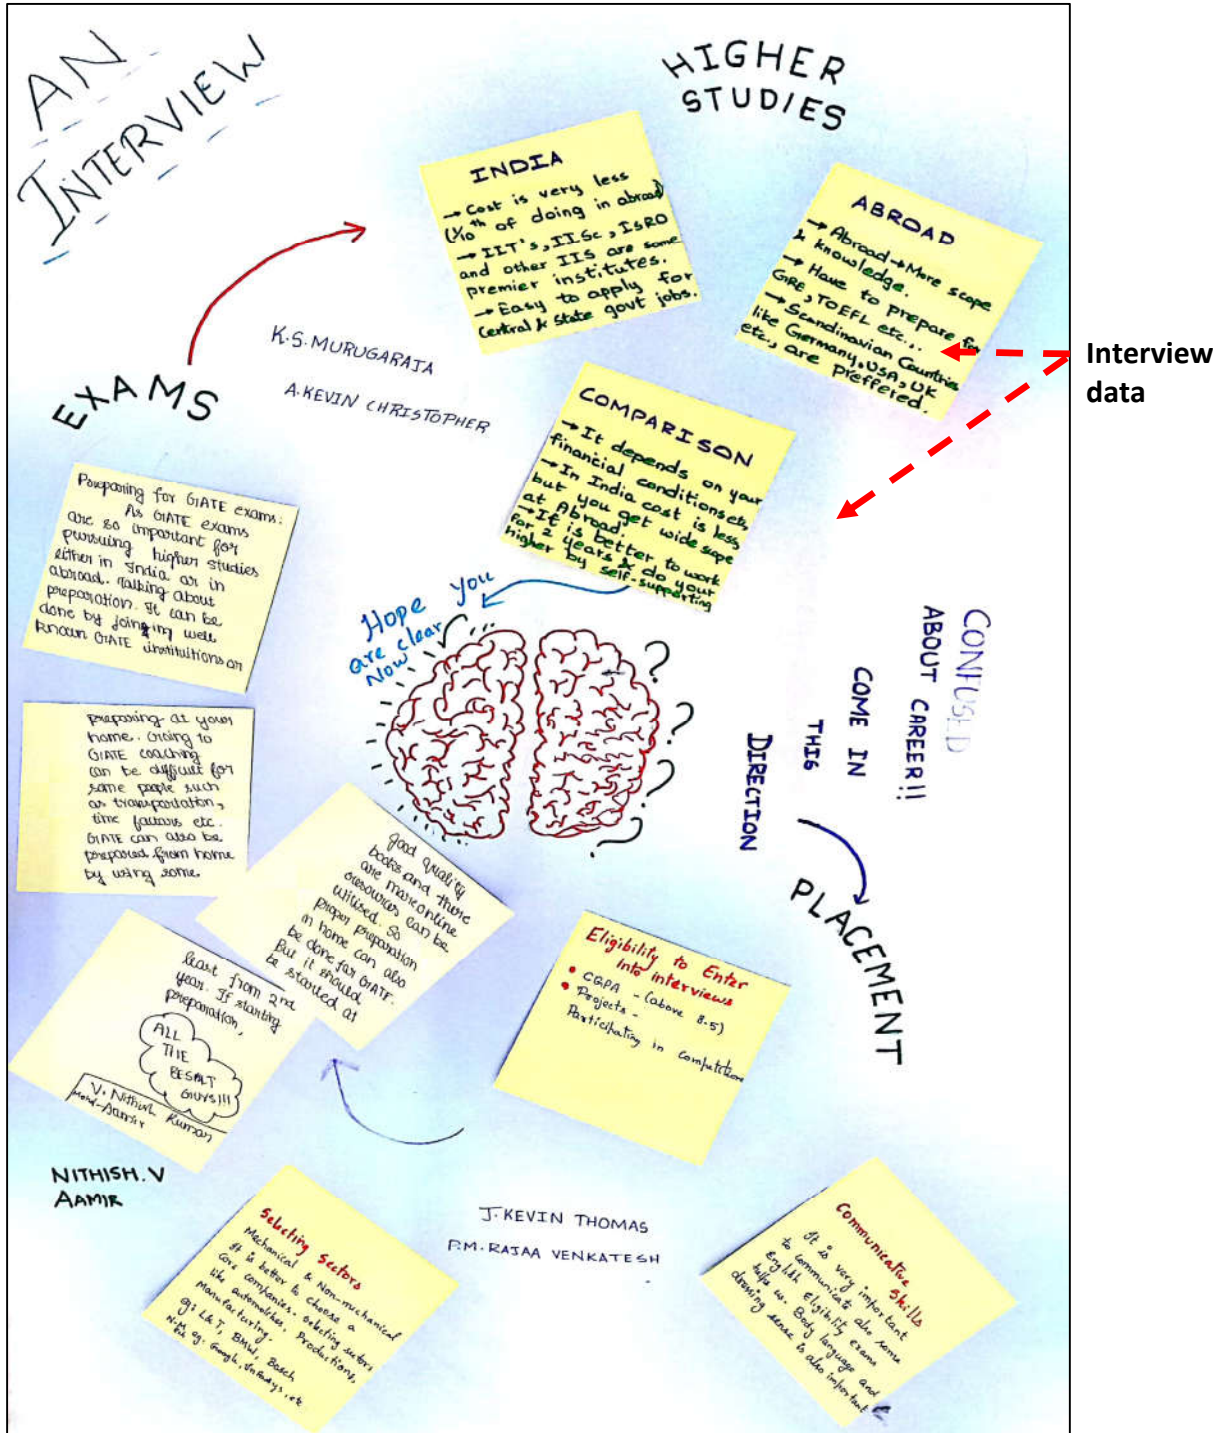 AN
INTERVIEW
HIGHER
STUDIES
INDIA
→ Cost is very less
(1/10th of doing in abroad)
→ IIT's, IISc, ISRO
and other IIS are some
premier institutes.
→ Easy to apply for
Central & State govt jobs.
ABROAD
→ Abroad → More scope
& knowledge.
→ Have to prepare for
GRE, TOEFL etc...
→ Scandinavian Countries
like Germany, USA, UK
etc., are preffered.
Interview
data
K.S. MURUGARAJA
A. KEVIN CHRISTOPHER
COMPARISON
→ It depends on your
financial conditions etc
→ In India cost is less,
but you get wide scope
at Abroad.
→ It is better to work
for 2 years & do your
higher by self-supporting
EXAMS
Preparing for GATE exams:
As GATE exams
are so important for
pursuing higher studies
either in India or in
abroad. Talking about
preparation. It can be
done by joinging well
known GATE instituitions or
preparing at your
home. Going to
GATE coaching
can be difficult for
some people such
as transportation,
time factors etc.
GATE can also be
prepared from home
by using some
good quality
books and there
are more online
resources can be
utilised. So
proper preparation
in home can also
be done for GATE.
But it should
be started at
least from 2nd
year. If starting
preparation,
ALL
THE
BESALT
GUYS!!!
V. Nithish Kumar
Mohd-Aamir
NITHISH. V
AAMIR
Hope you
are clear
Now
? ? ? ?
CONFUSED
ABOUT CAREER!!
COME IN
THIS
DIRECTION
PLACEMENT
Eligibility to Enter
into interviews
• CGPA - (above 8.5)
• Projects -
Participating in Competitions
J. KEVIN THOMAS
P.M. RAJAA VENKATESH
Selecting Sectors
Mechanical & Non-mechanical
It is better to choose a
core companies. Selecting sectors
like automobiles, Productions,
Manufacturing.
eg: L&T, BMW, Bosch
N-M eg: Google, Infosys, etc
Communicative Skills
It is very important
to communicate also some
English Eligibility exams
helps us. Body language and
dressing sense is also important